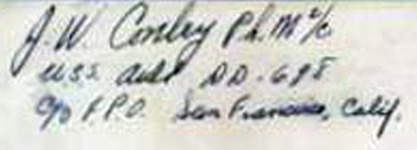 J. W. Conley Ph.M 2/c
U.S.S. Ault DD-698
c/o F.P.O. San Francisco, Calif.